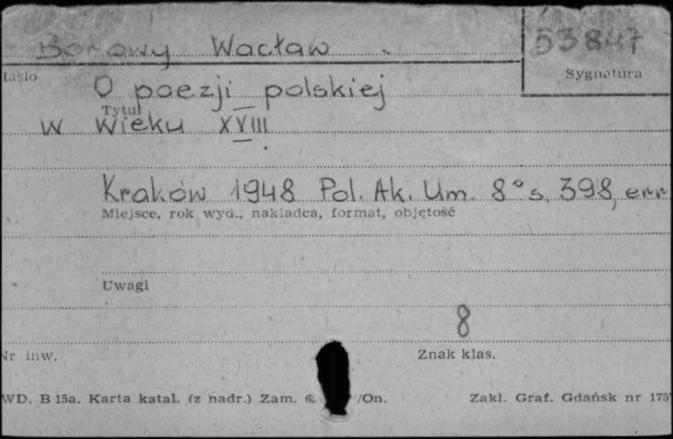 Borowy Wacław
53847
Hasło
Sygnatura
O poezji polskiej
Tytuł
w wieku XVIII.
Kraków 1948 Pol. Ak. Um. 8° s. 398, err
Miejsce, rok wyd., nakładca, format, objętość
Uwagi
8
Nr inw.
Znak klas.
WD. B 15a. Karta katal. (z nadr.) Zam. /On.
Zakł. Graf. Gdańsk nr 175